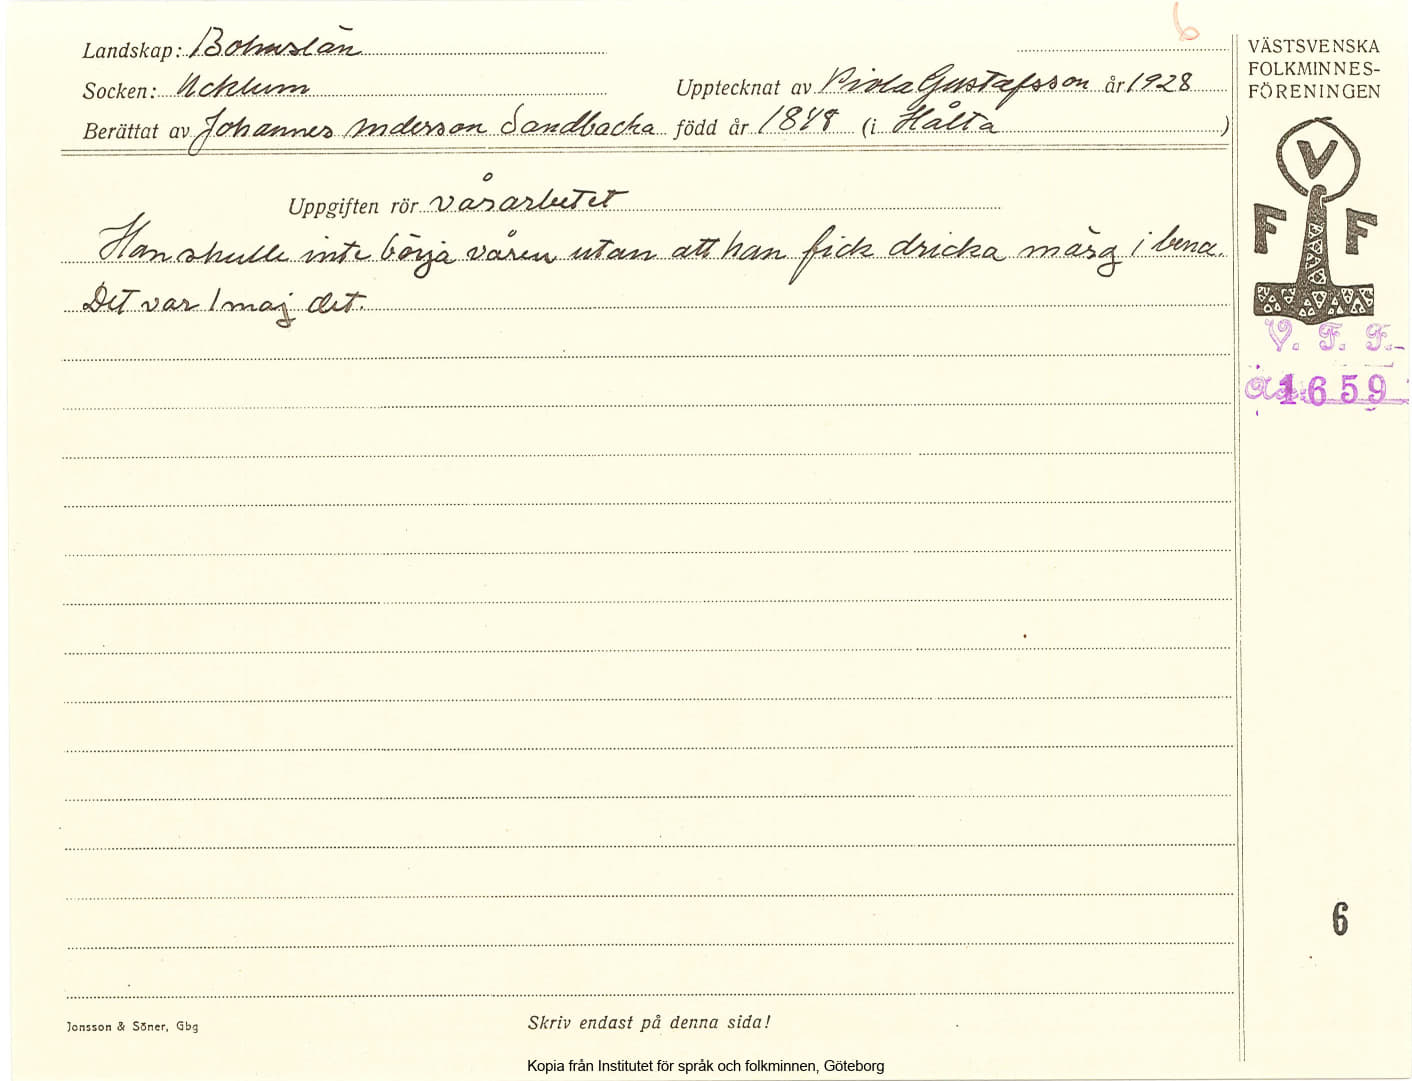 6
Landskap: Bohuslän
VÄSTSVENSKA
FOLKMINNES-
FÖRENINGEN
Socken: Ucklum Upptecknat av Viola Gustafsson år 1928
Berättat av Johannes Anderson Sandbacka född år 1848 (i Hålta )
V
F F
Uppgiften rör vårarbetet
Han skulle inte börja våren utan att han fick dricka märg i bena.
Det var 1 maj det.
V. F. F.
1659
6
Jonsson & Söner, Gbg
Skriv endast på denna sida!
Kopia från Institutet för språk och folkminnen, Göteborg